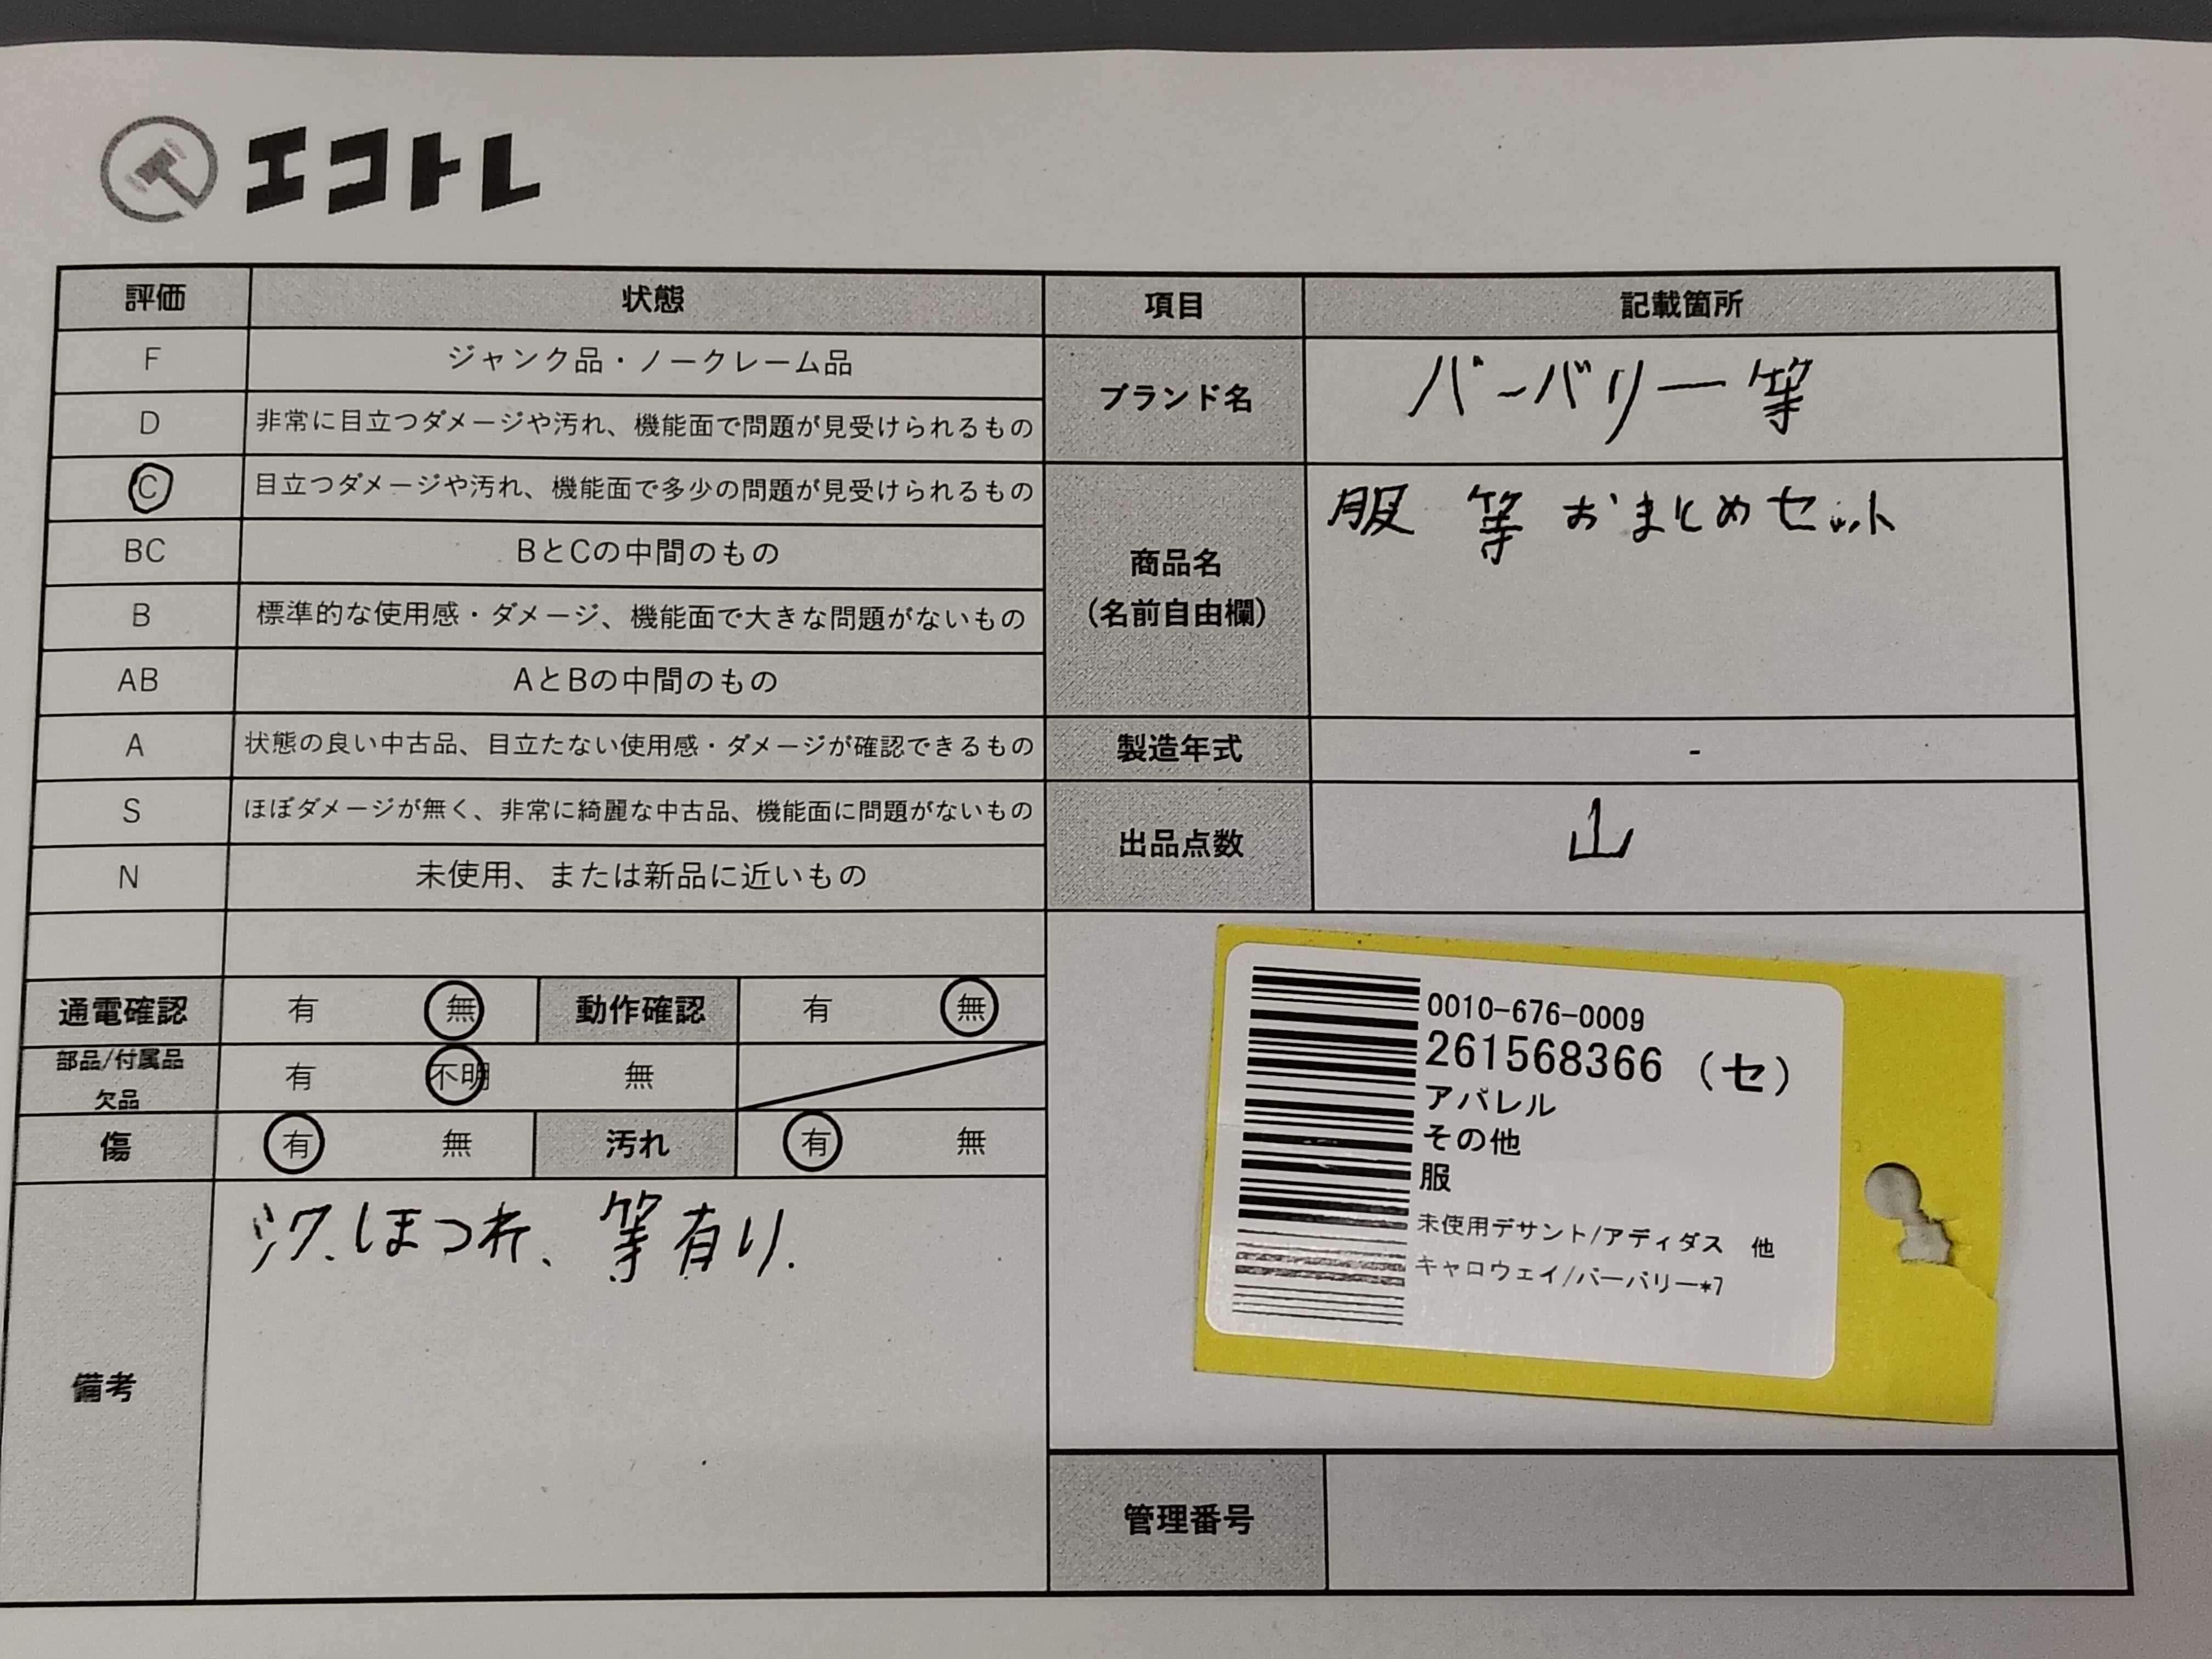 エコトレ
評価 状態 項目 記載箇所
F ジャンク品・ノークレーム品
D 非常に目立つダメージや汚れ、機能面で問題が見受けられるもの
C 目立つダメージや汚れ、機能面で多少の問題が見受けられるもの
BC BとCの中間のもの
B 標準的な使用感・ダメージ、機能面で大きな問題がないもの
AB AとBの中間のもの
A 状態の良い中古品、目立たない使用感・ダメージが確認できるもの
S ほぼダメージが無く、非常に綺麗な中古品、機能面に問題がないもの
N 未使用、または新品に近いもの
ブランド名 バーバリー等
商品名 服 等 おまとめセット
(名前自由欄)
製造年式 -
出品点数 山
通電確認 有 無 動作確認 有 無
部品/付属品
欠品 有 不明 無
傷 有 無 汚れ 有 無
備考 ほつれ、等有り.
0010-676-0009
261568366 (セ)
アパレル
その他
服
未使用デサント/アディダス 他
キャロウェイ/バーバリー*7
管理番号